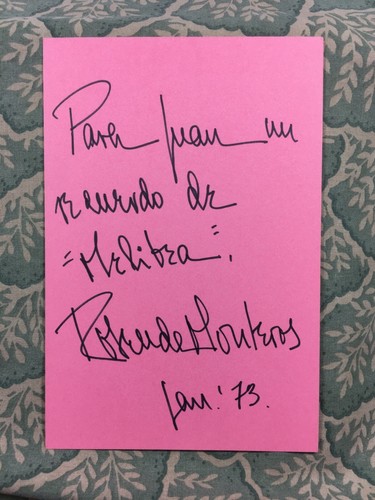 Para Juan un
recuerdo de
"Melibea".
Rosenda Monteros
Jan. '73.